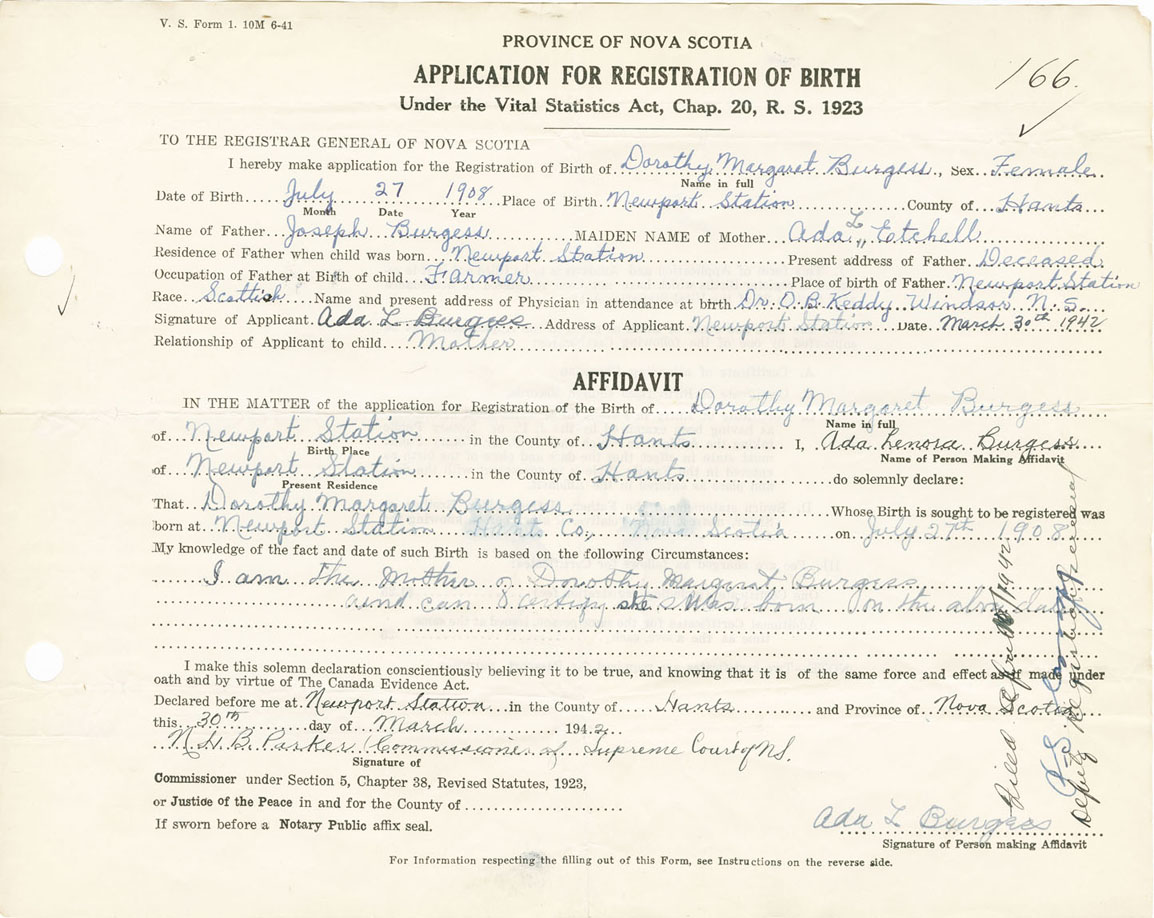 V. S. Form 1. 10M 6-41
PROVINCE OF NOVA SCOTIA
APPLICATION FOR REGISTRATION OF BIRTH
166.
Under the Vital Statistics Act, Chap. 20, R. S. 1923
TO THE REGISTRAR GENERAL OF NOVA SCOTIA
I hereby make application for the Registration of Birth of Dorothy Margaret Burgess, Sex Female
Name in full
Date of Birth July 27 1908 Place of Birth Newport Station County of Hants
Month Date Year
Name of Father Joseph Burgess MAIDEN NAME of Mother Ada L. Etchell
Residence of Father when child was born Newport Station Present address of Father Deceased
Occupation of Father at Birth of child Farmer Place of birth of Father Newport Station
Race Scottish Name and present address of Physician in attendance at birth Dr. O. B. Keddy Windsor N. S.
Signature of Applicant Ada L Burgess Address of Applicant Newport Station Date March 30th 1942
Relationship of Applicant to child Mother
AFFIDAVIT
IN THE MATTER of the application for Registration of the Birth of Dorothy Margaret Burgess
Name in full
of Newport Station in the County of Hants I, Ada Lenora Burgess
Birth Place Name of Person Making Affidavit
of Newport Station in the County of Hants do solemnly declare:
Present Residence
That Dorothy Margaret Burgess Whose Birth is sought to be registered was
born at Newport Station Hants Co., Nova Scotia on July 27th 1908
My knowledge of the fact and date of such Birth is based on the following Circumstances:
I am the Mother of Dorothy Margaret Burgess
and can certify she was born on the above date
I make this solemn declaration conscientiously believing it to be true, and knowing that it is of the same force and effect as if made under
oath and by virtue of The Canada Evidence Act.
Declared before me at Newport Station in the County of Hants and Province of Nova Scotia
this 30th day of March 1942
N. H. B. Parker (Commissioner of Supreme Court of N.S.
Signature of
Commissioner under Section 5, Chapter 38, Revised Statutes, 1923,
or Justice of the Peace in and for the County of
If sworn before a Notary Public affix seal.
Ada L Burgess
Signature of Person making Affidavit
For Information respecting the filling out of this Form, see Instructions on the reverse side.
Filed April 1942
Deputy Registrar General